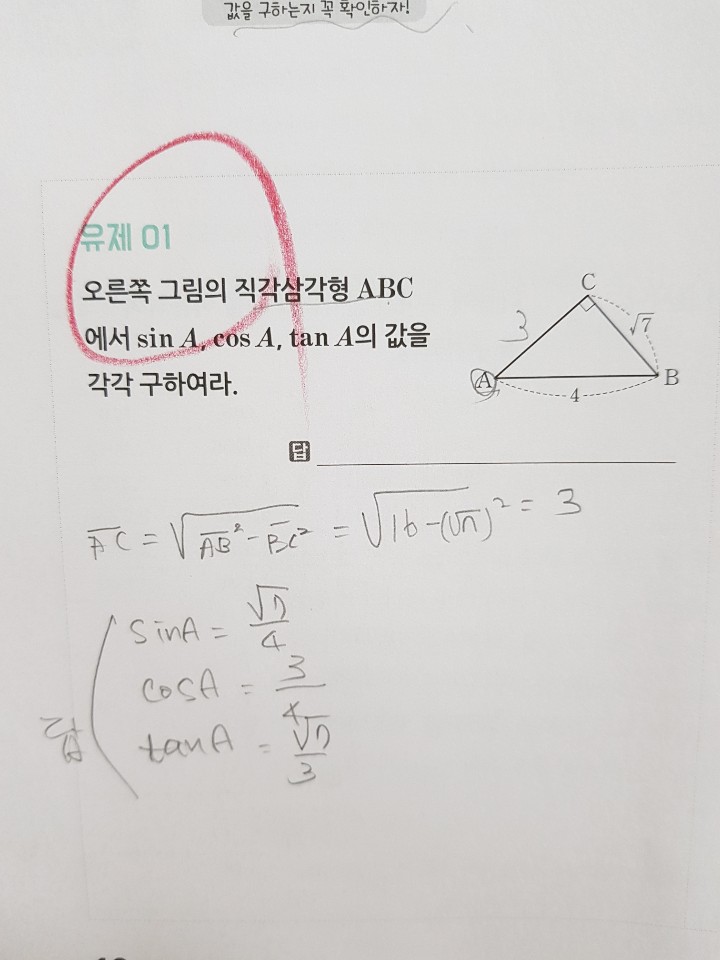 값을 구하는지 꼭 확인하자!
유제 01
오른쪽 그림의 직각삼각형 ABC
에서 sin A, cos A, tan A의 값을
각각 구하여라.
C
3
√7
A
B
4
답
AC = √(AB² - BC²) = √(16-(√7)²) = 3
sinA = √7/4
cosA = 3/4
답
tanA = √7/3